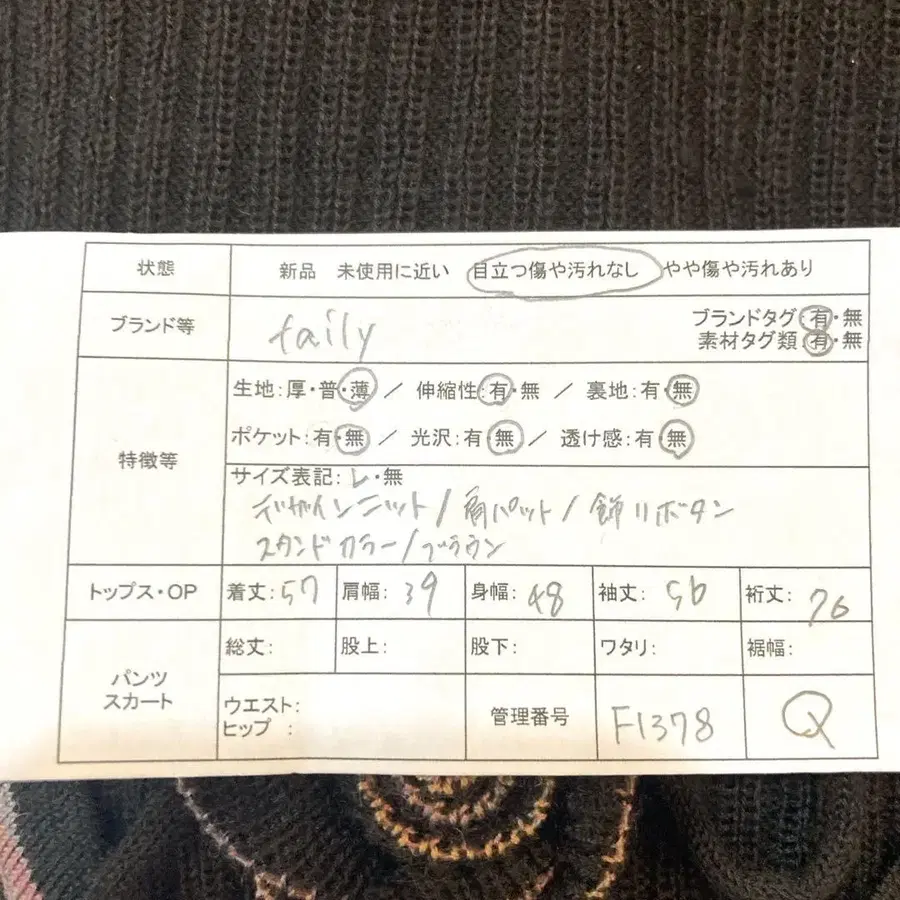 状態 新品 未使用に近い 目立つ傷や汚れなし やや傷や汚れあり
ブランド等 faily ブランドタグ:有・無
素材タグ類:有・無
特徴等
生地:厚・普・薄 / 伸縮性:有・無 / 裏地:有・無
ポケット:有・無 / 光沢:有・無 / 透け感:有・無
サイズ表記:L・無
デザインニット/肩パット/飾りボタン
スタンドカラー/ブラウン
トップス・OP 着丈:57 肩幅:39 身幅:48 袖丈:56 裄丈:76
パンツ
スカート
総丈: 股上: 股下: ワタリ: 裾幅:
ウエスト:
ヒップ :
管理番号 F1378 Q